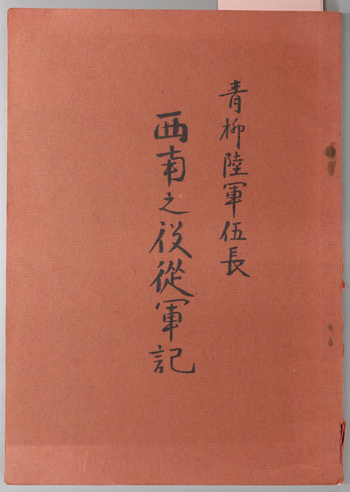 青柳陸軍伍長
西南之役從軍記